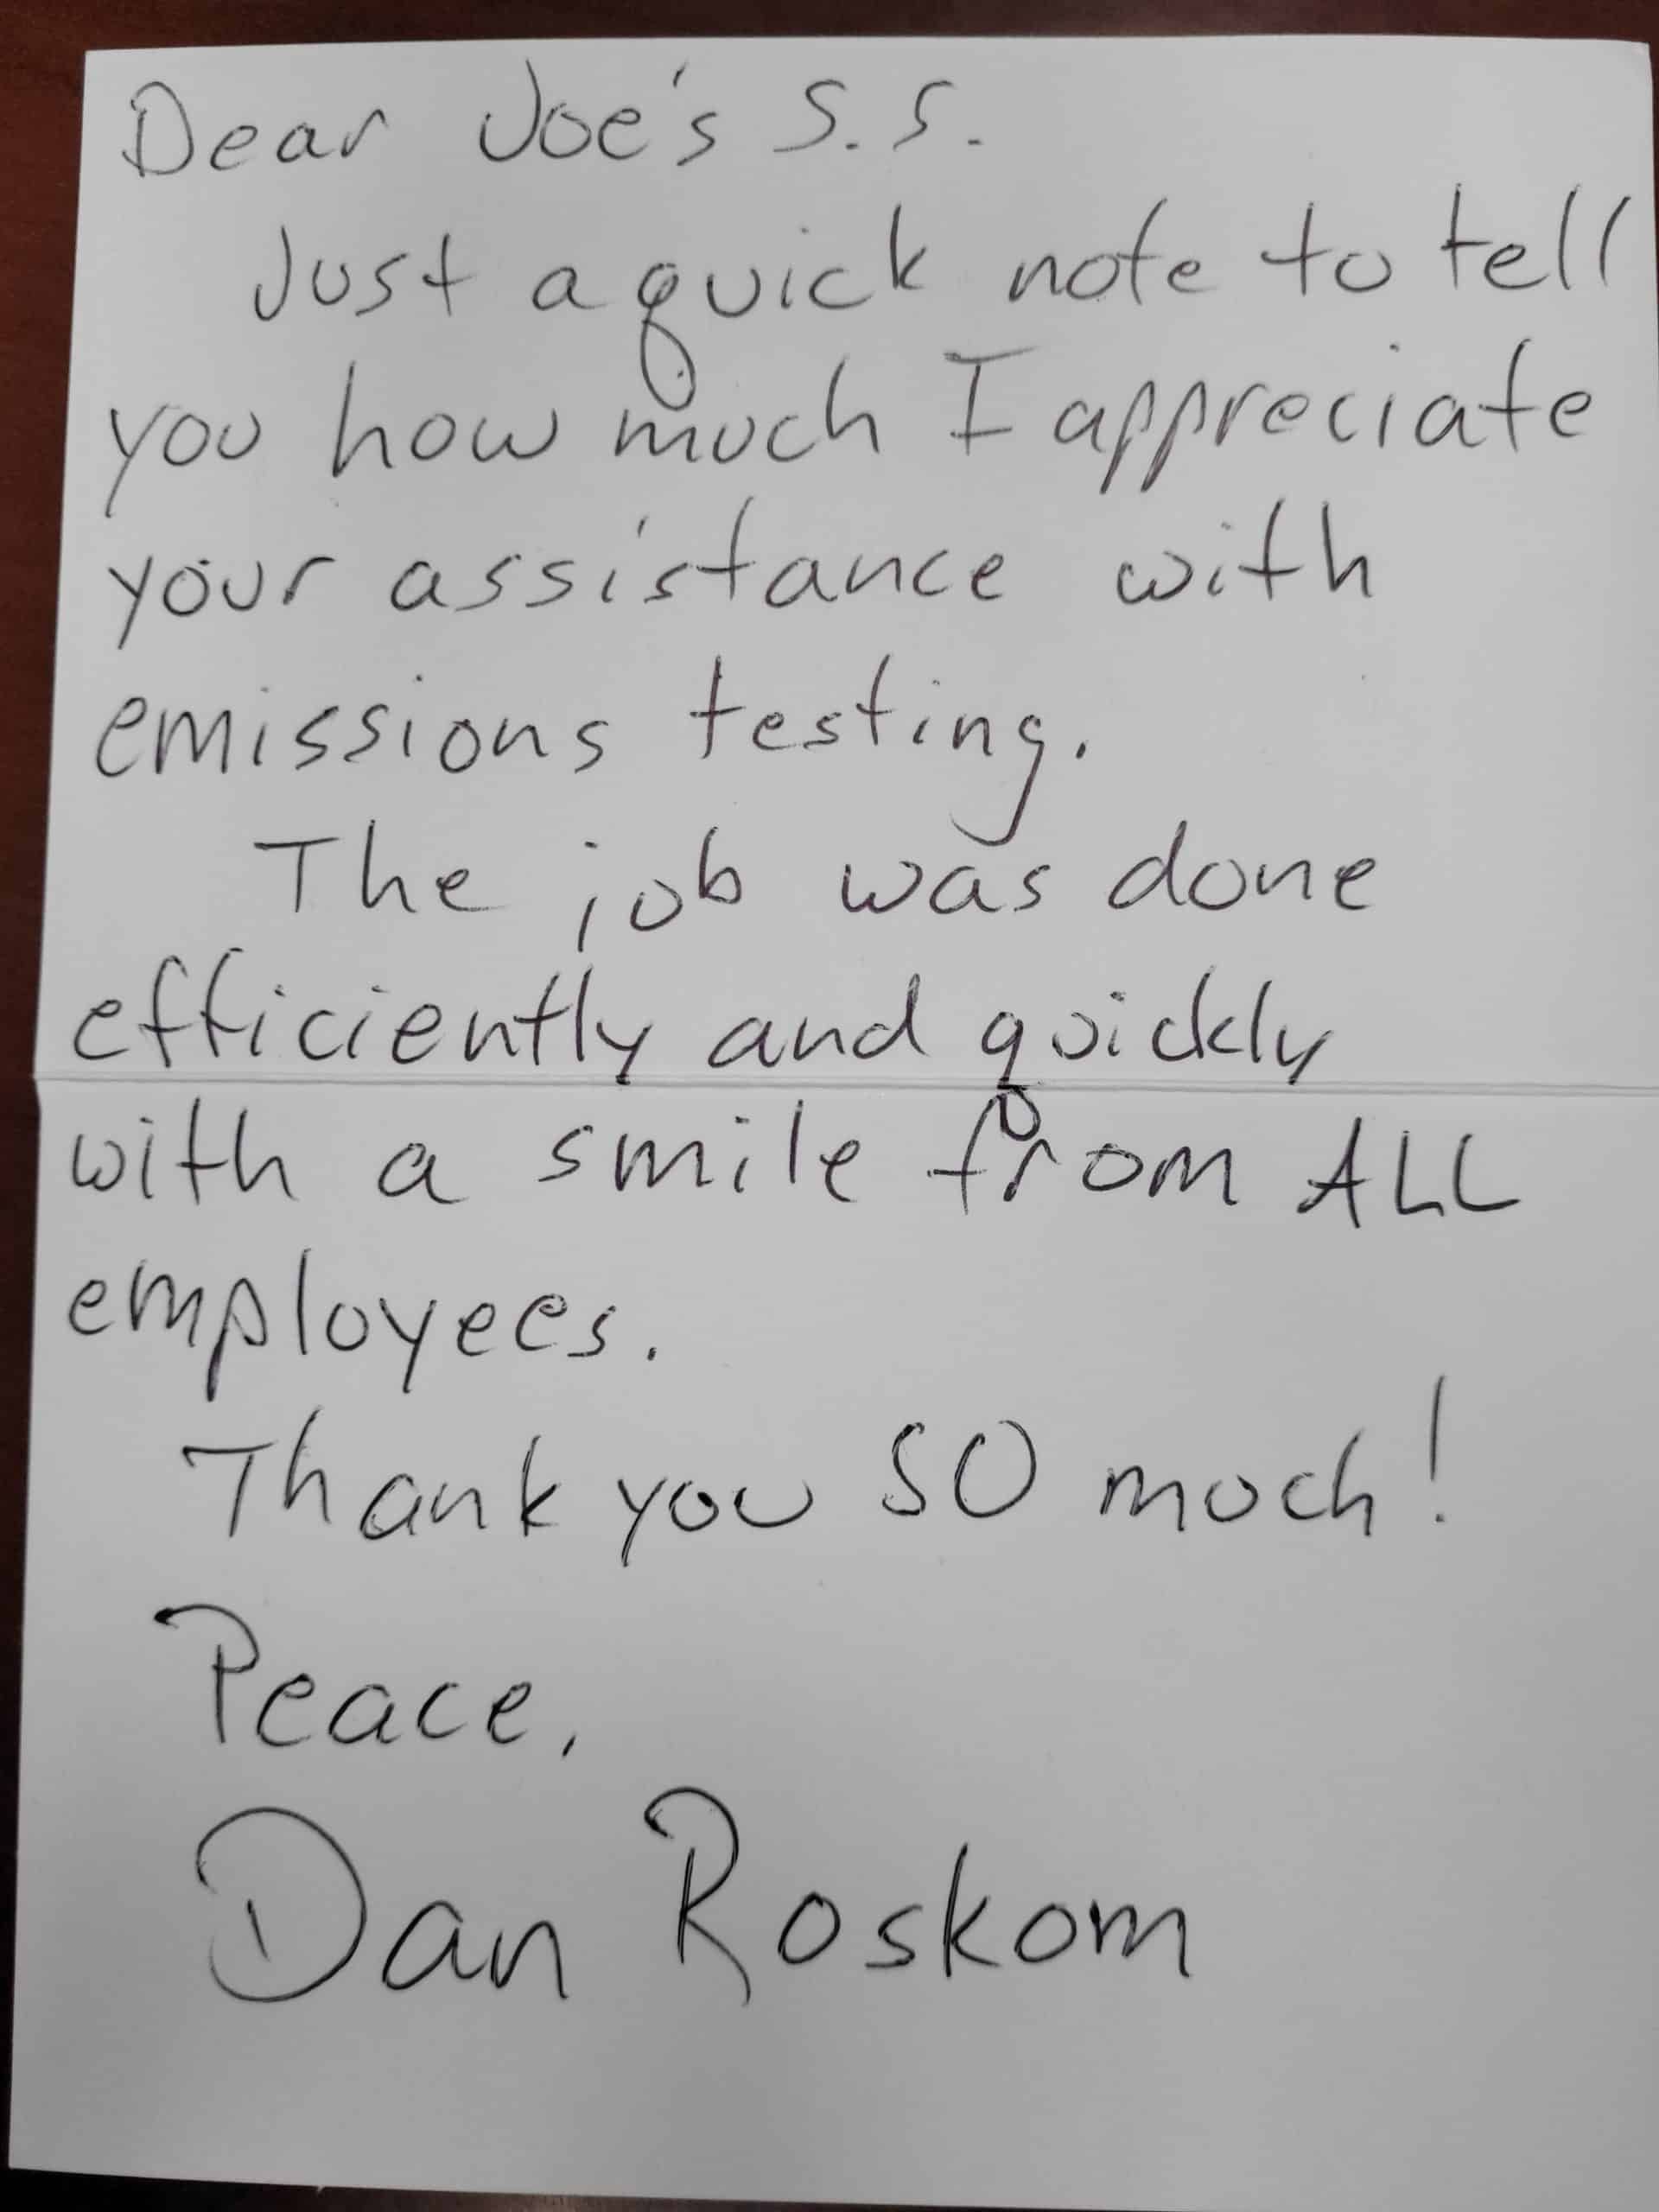 Dear Joe's S.S.
Just a quick note to tell
you how much I appreciate
your assistance with
emissions testing.
The job was done
efficiently and quickly
with a smile from ALL
employees.
Thank you SO much!
Peace,
Dan Roskom